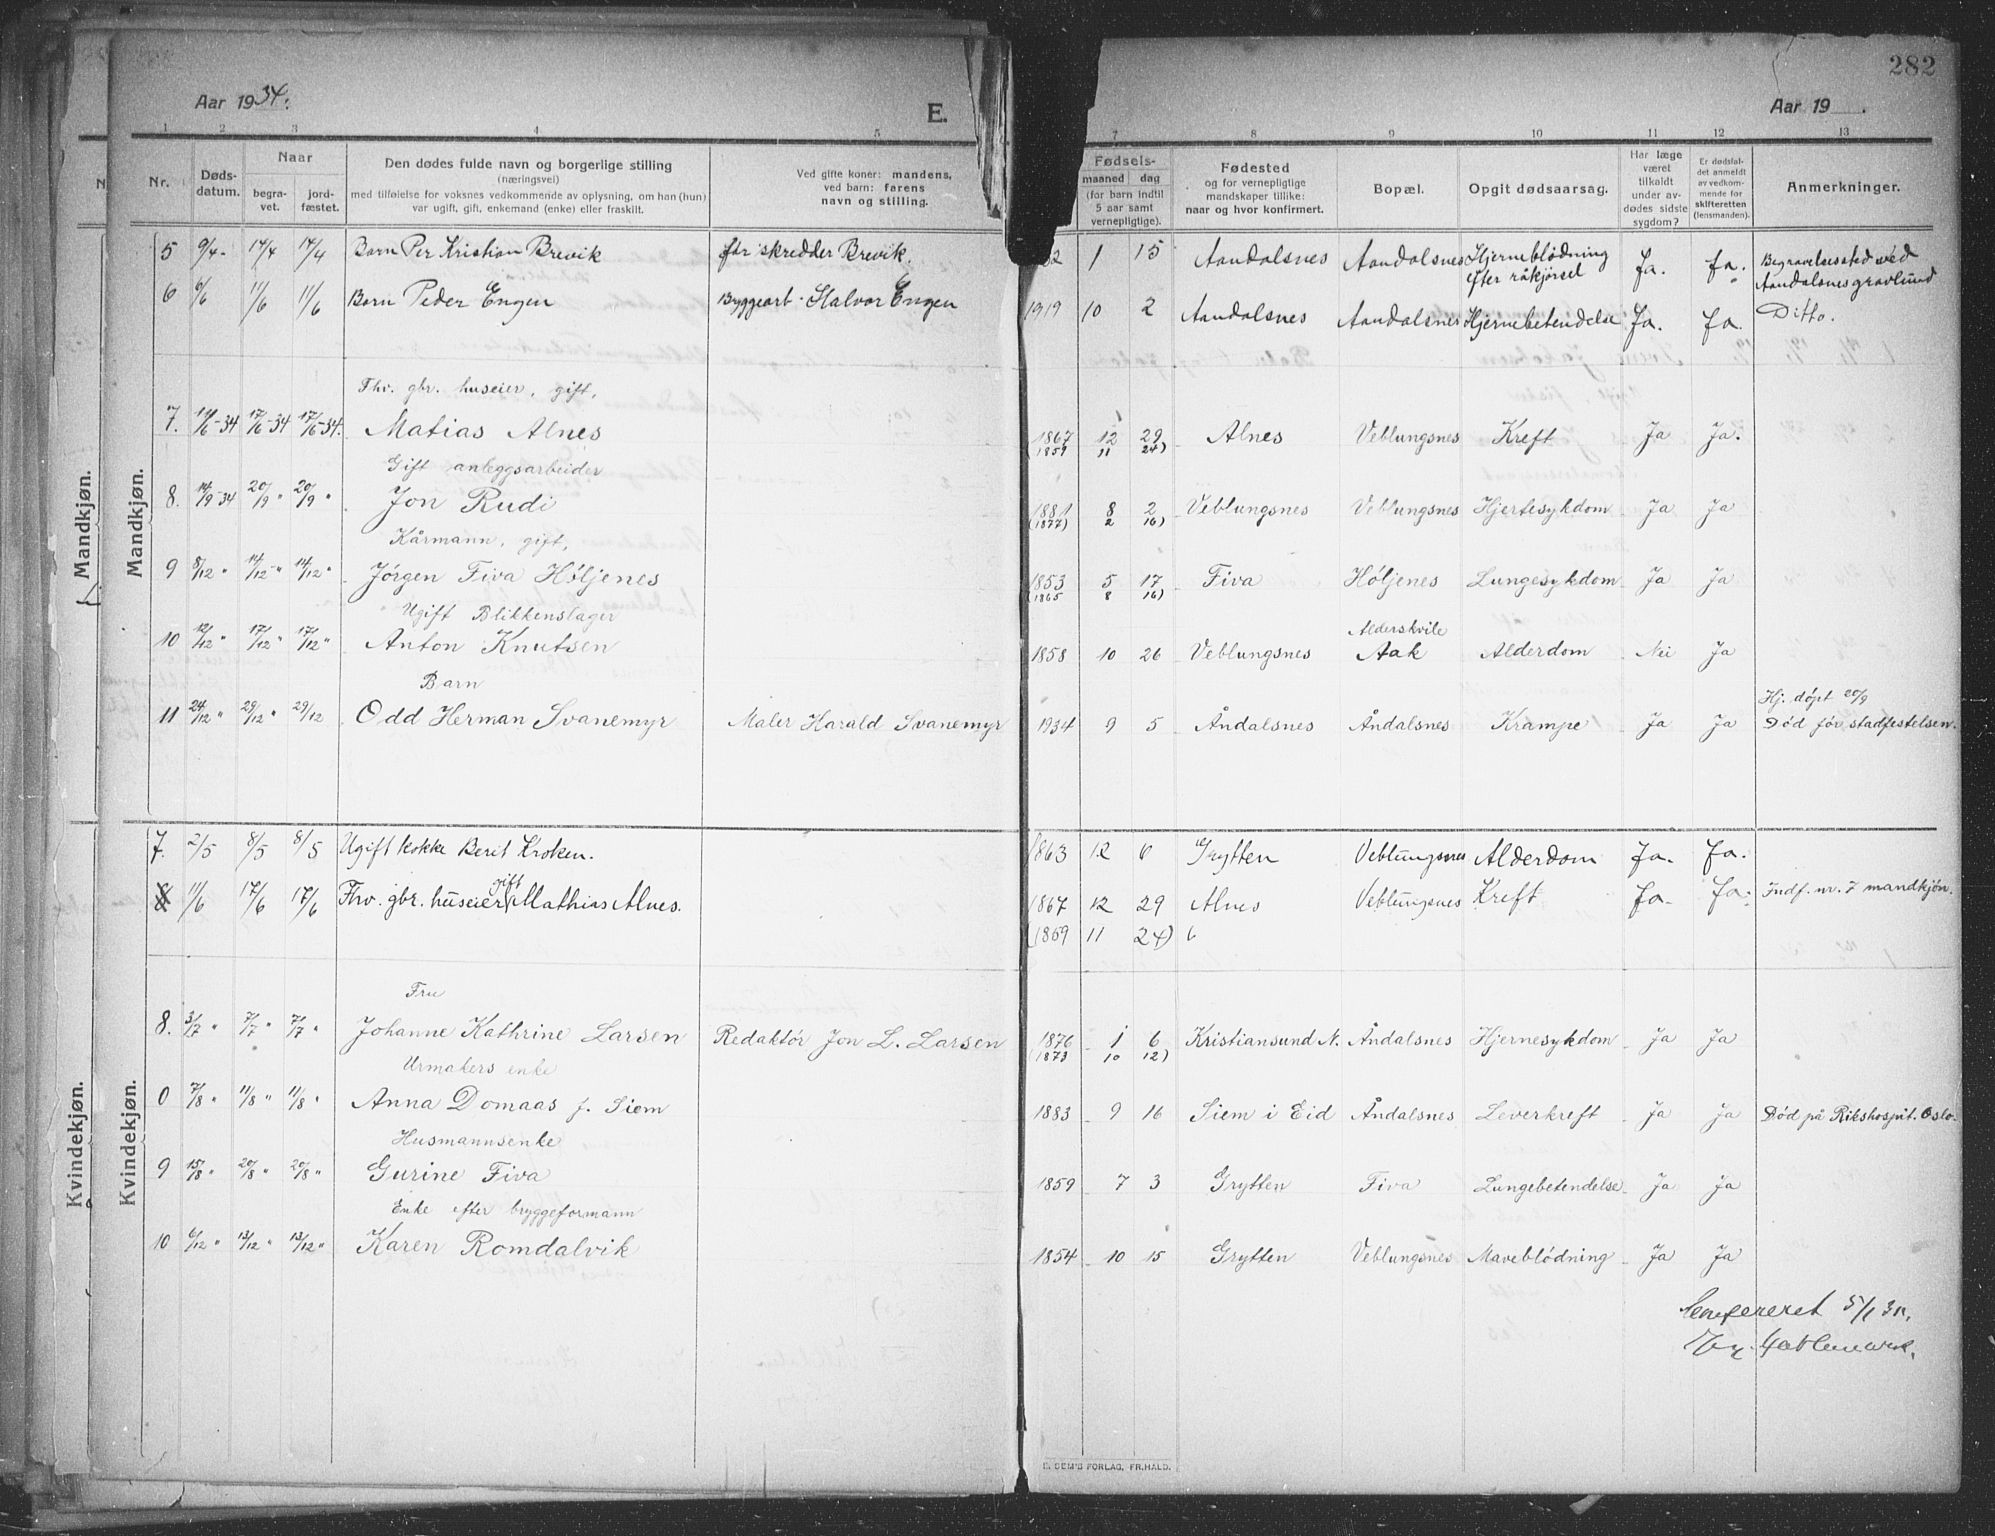 282
Aar 1934.
E.
Aar 19 .
1 2 3 4 5 7 8 9 10 11 12 13
Nr.
Døds-
datum.
Naar
begra-
vet.
jord-
fæstet.
Den dødes fulde navn og borgerlige stilling
(næringsvei)
med tilføielse for voksnes vedkommende av oplysning, om han (hun)
var ugift, gift, enkemand (enke) eller fraskilt.
Ved gifte koner: mandens,
ved barn: farens
navn og stilling.
Fødsels-
maaned dag
(for barn indtil
5 aar samt
vernepligtige).
Fødested
og for vernepligtige
mandskaper tillike:
naar og hvor konfirmert.
Bopæl.
Opgit dødsaarsag.
Har læge
været
tilkaldt
under av-
dødes sidste
sygdom?
Er dødsfal-
det anmeldt
av vedkom-
mende for
skifteretten
(lensmanden).
Anmerkninger.
Mandkjøn.
Mandkjøn.
5 9/4 17/4 17/4 Barn Per Kristian Brevik far skredder Brevik. 1 15 Aandalsnes Aandalsnes Hjerneblödning Ja. Ja. Begravelsessted ved
efter råkjörsel Aandalsnes gravlund
6 6/6 11/6 11/6 Barn Peder Engen Byggearb. Halvor Engen 1919 10 2 Aandalsnes Aandalsnes Hjernebetendelse Ja. Ja. Ditto.
Fhv. gbr. huseier, gift,
7. 11/6-34 17/6-34 17/6-34. Matias Alnes 1867 12 29 Alnes Veblungsnes Kreft Ja Ja.
(1859 11 24)
Gift anleggsarbeider
8. 14/9-34 20/9 " 20/9 " Jon Rudi 1881 8 2 Veblungsnes Veblungsnes Hjertesykdom Ja Ja
(1877) 2 16)
Kårmann, gift,
9 8/12 " 14/12 " 14/12 " Jørgen Fiva Høljenes 1853 5 17 Fiva Høljenes Lungesykdom Ja Ja
(1865 8 16)
Ugift Blikkenslager
Alderskvile
10 12/12 " 17/12 " 17/12 " Anton Knutsen 1858 10 26 Veblungsnes Aak Alderdom Nei Ja
Barn
Hj. døpt 20/9
11 24/12 " 29/12 " 29/12 Odd Herman Svanemyr Maler Harald Svanemyr 1934 9 5 Åndalsnes Åndalsnes Krampe Ja Ja Død før stadfestelsen.
Kvindekjøn.
Kvindekjøn.
7. 2/5 8/5 8/5 Ugift kokke Berit Kroken. 1863 12 6 Grytten Veblungsnes Alderdom Ja. Ja.
gift
11/6 17/6 17/6 Fhv. gbr. huseier Mathias Alnes. 1867 12 29 Alnes Veblungsnes Kreft Ja. Ja. Indf. nr. 7 mandkjön.
(1859 11 24)
Fru
8. 3/7 " 7/7 " 7/7 " Johanne Kathrine Larsen Redaktør Jon L. Larsen 1876 1 6 Kristiansund N. Åndalsnes Hjernesykdom Ja Ja
(1873 10 12)
Urmakers enke
0 7/8 " 11/8 " 11/8 " Anna Domaas f. Siem 1883 9 16 Siem i Eid Åndalsnes Leverkreft Ja Ja Død på Rikshospit. Oslo.
Husmannsenke
9 15/8 " 20/8 " 20/8 " Gurine Fiva 1859 7 3 Grytten Fiva Lungebetendelse Ja Ja
Enke efter bryggeformann
10 6/12 " 13/12 " 13/12 " Karen Romdalvik 1854 10 15 Grytten Veblungsnes Maveblödning Ja Ja
5/1
FORLAG, FR.HALD.